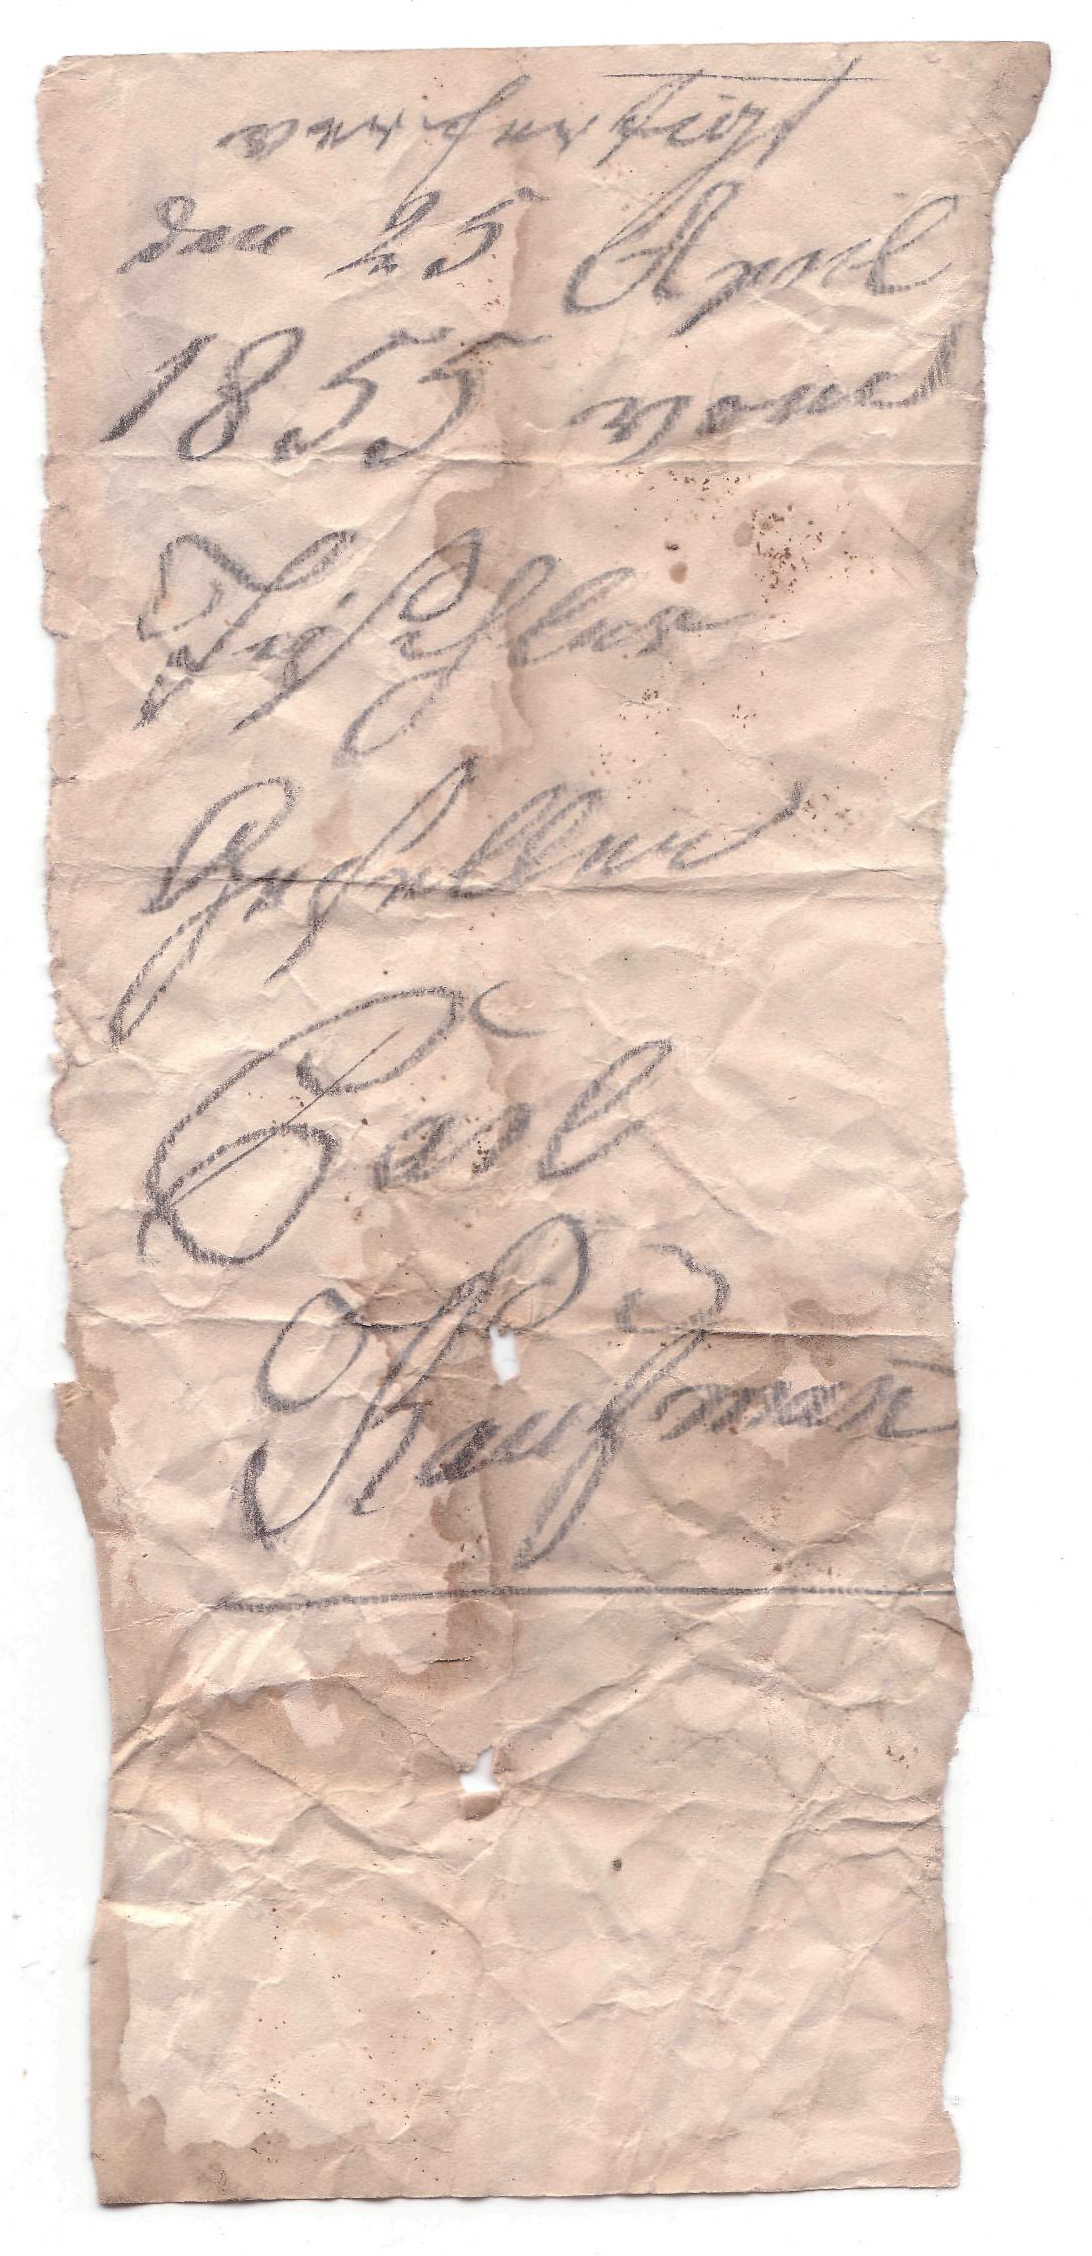 verfertigt
den 25 April
1855 vom
Tischler
Gesellen
Carl
Kaufman